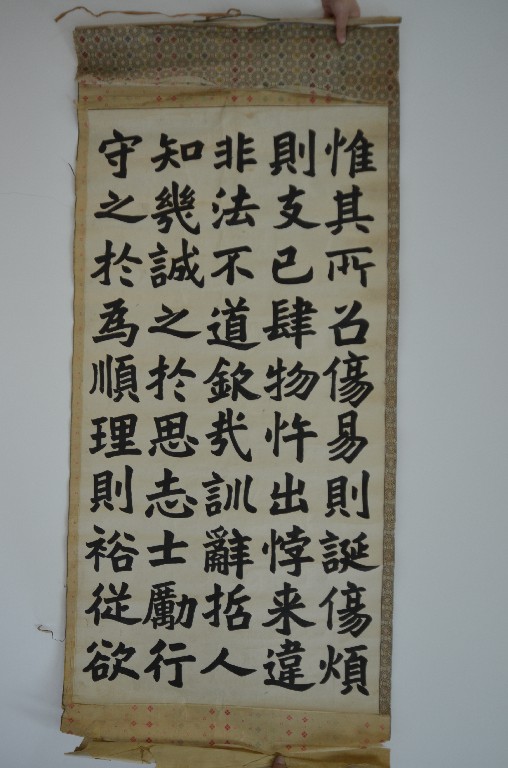 惟其所召傷易則誕傷煩
則支已肆物忤出悖来違
非法不道欽哉訓辭哲人
知幾誠之於思志士勵行
守之於為順理則裕従欲